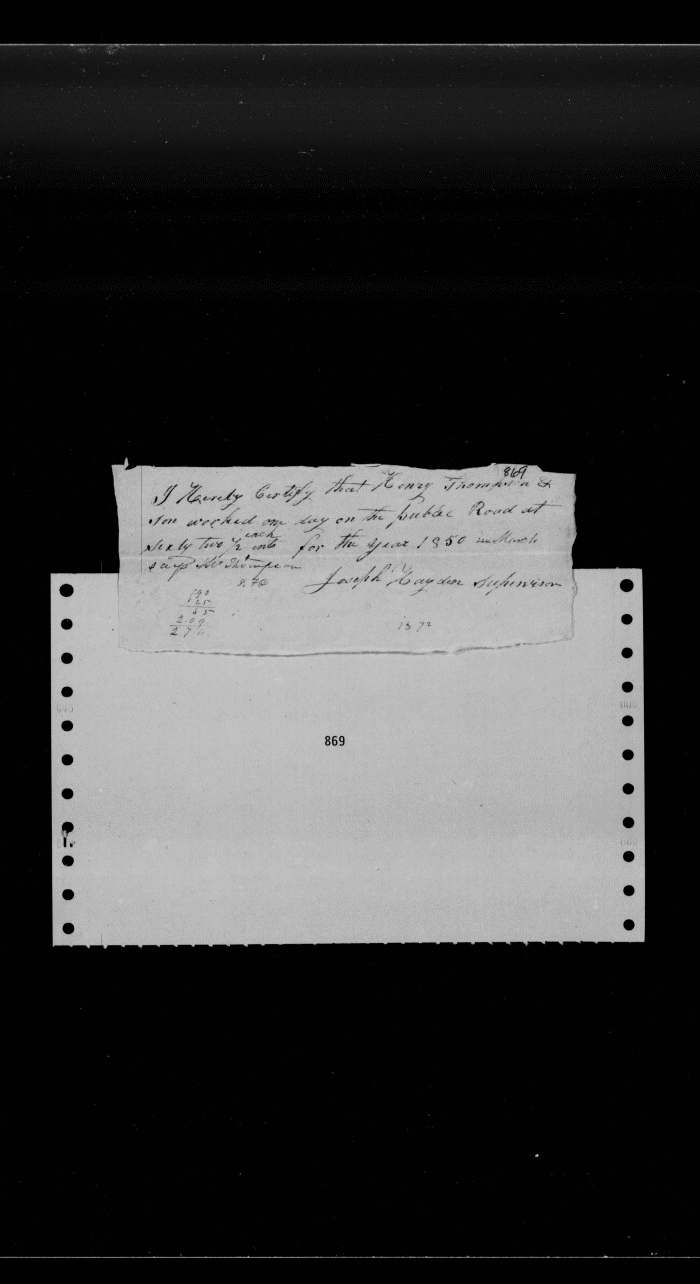 869
I Hereby Certify that Henry Thompson &
son worked one day on the public Road at
each
sixty two ½ cents for the year 1850 in March
says Mr Thompson
Joseph Hayden Supervisor
8.70
190
125
65
2.09
13 72
869